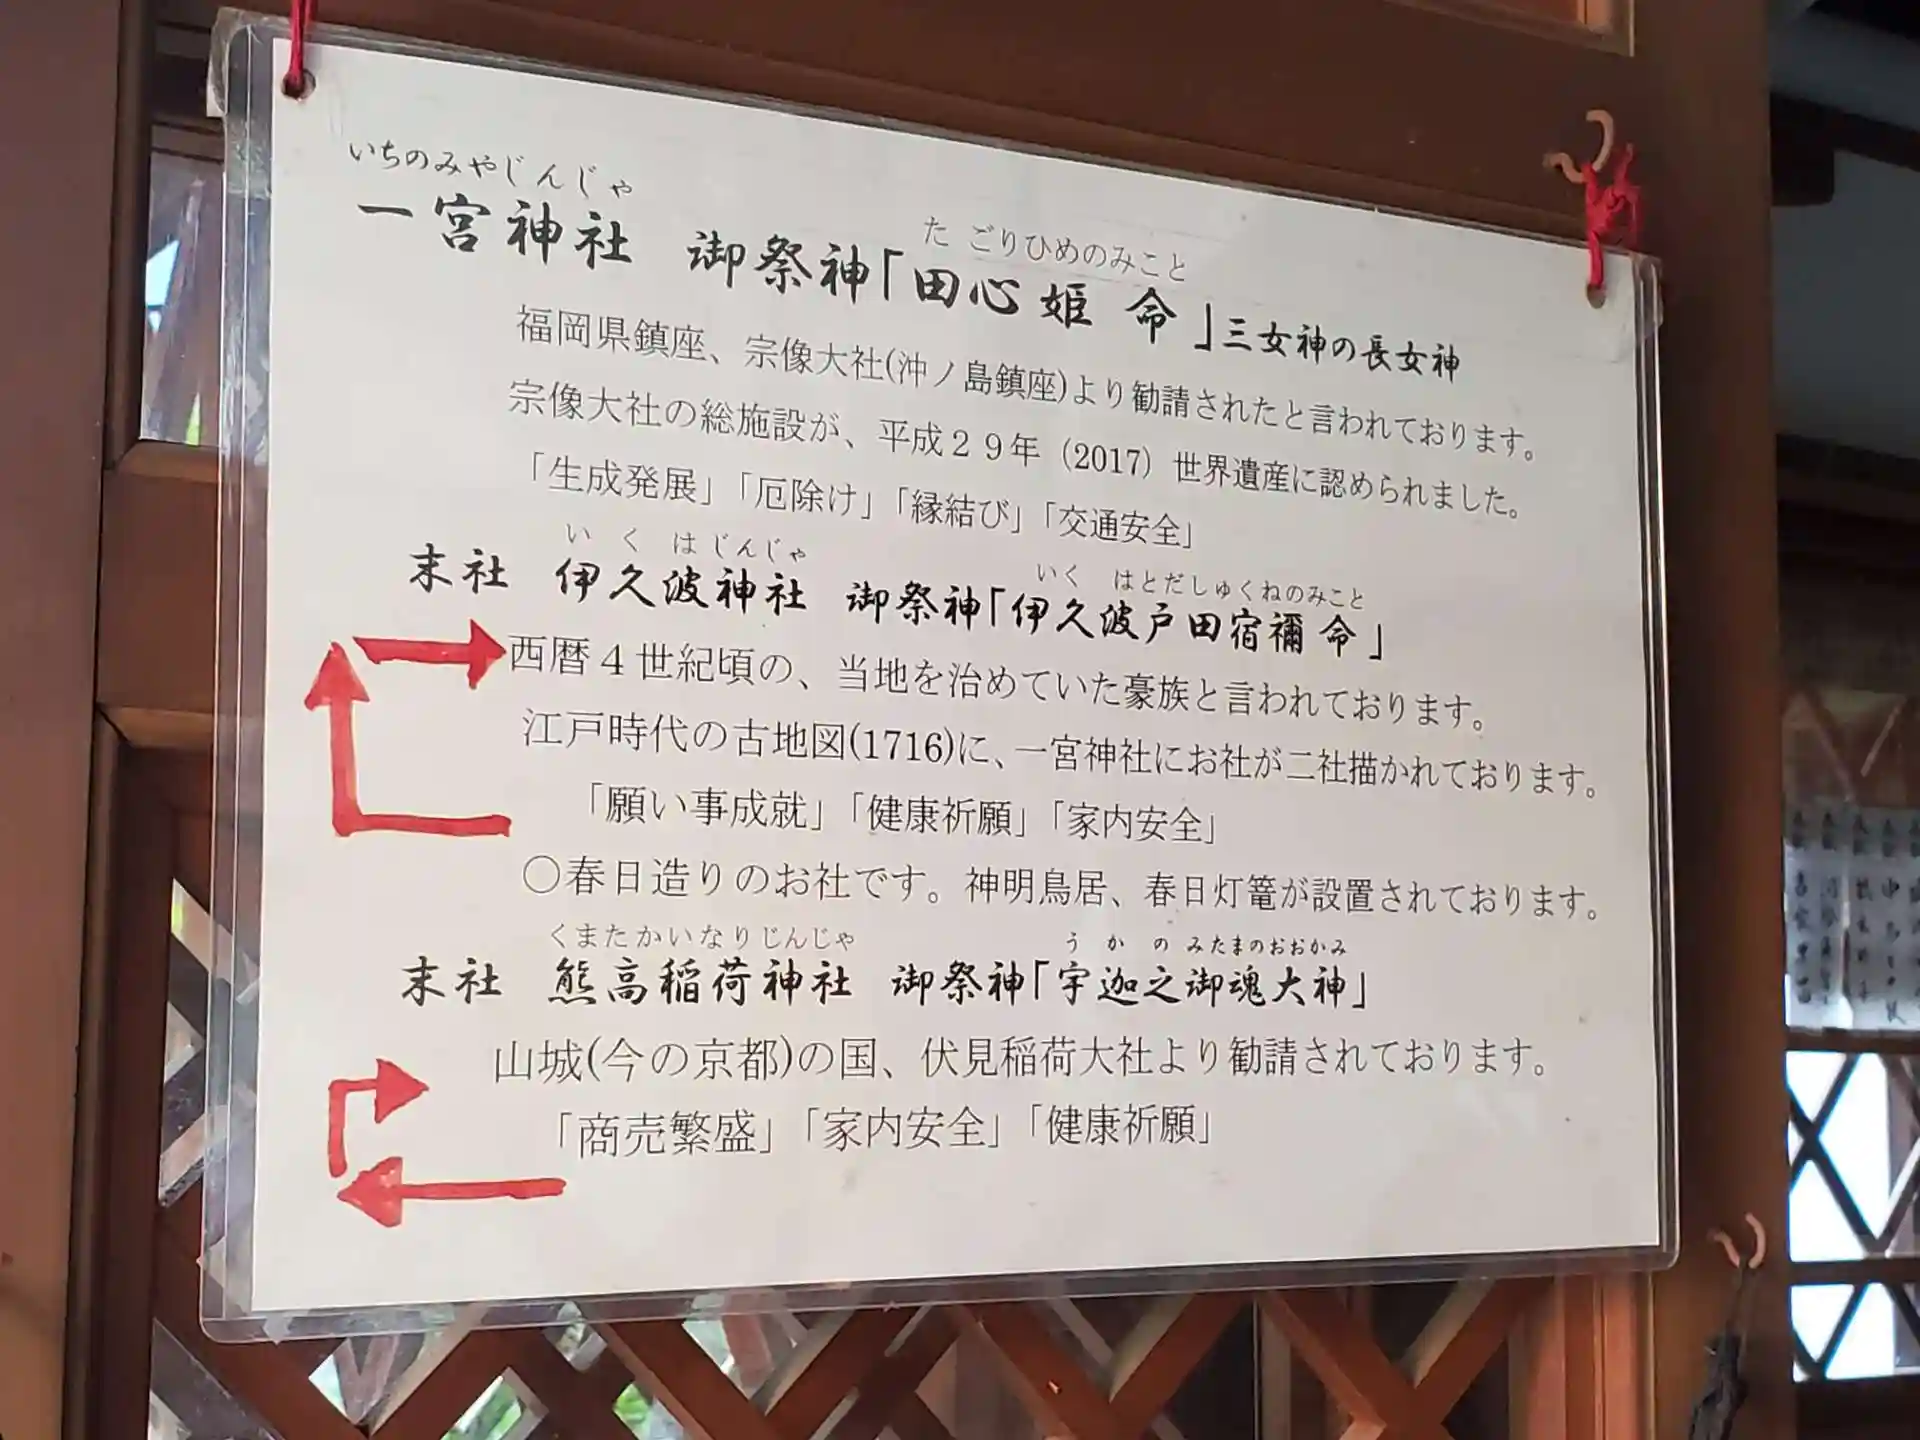 いちのみやじんじゃ
一宮神社 御祭神「田心姫命」三女神の長女神
たごりひめのみこと
福岡県鎮座、宗像大社(沖ノ島鎮座)より勧請されたと言われております。
宗像大社の総施設が、平成29年（2017）世界遺産に認められました。
「生成発展」「厄除け」「縁結び」「交通安全」
いくはじんじゃ
末社 伊久波神社 御祭神「伊久波戸田宿禰命」
いくはとだしゅくねのみこと
西暦4世紀頃の、当地を治めていた豪族と言われております。
江戸時代の古地図(1716)に、一宮神社にお社が二社描かれております。
「願い事成就」「健康祈願」「家内安全」
○春日造りのお社です。神明鳥居、春日灯篭が設置されております。
くまたかいなりじんじゃ
うかのみたまのおおかみ
末社 熊高稲荷神社 御祭神「宇迦之御魂大神」
山城(今の京都)の国、伏見稲荷大社より勧請されております。
「商売繁盛」「家内安全」「健康祈願」